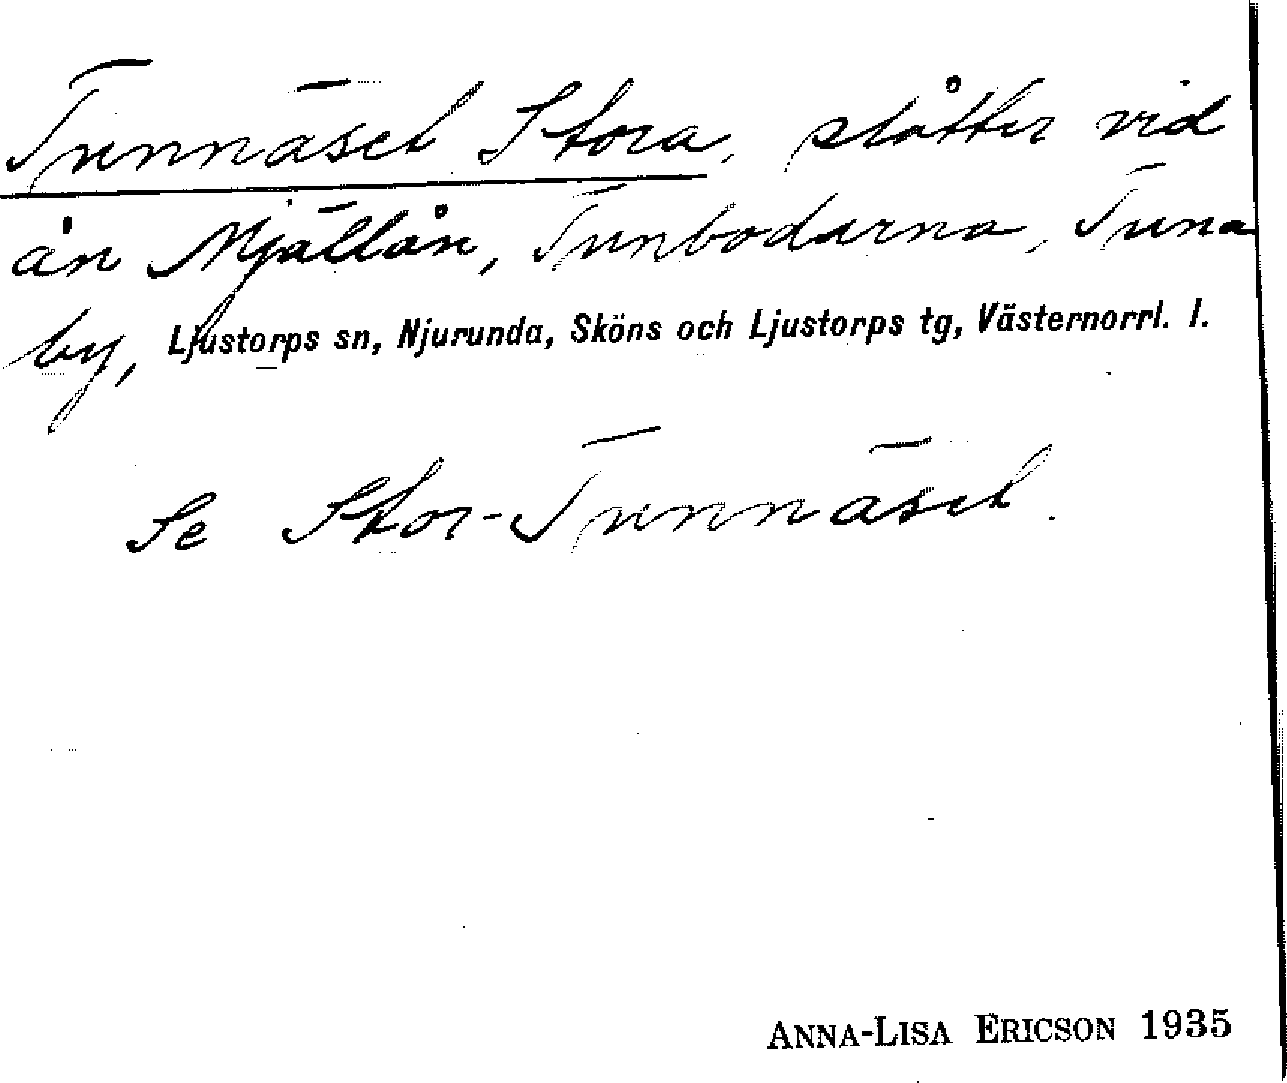 Tunnäset Stora, slåtter vid
ån Mjällån, Tunbodarna, Tuna
by, Ljustorps sn, Njurunda, Sköns och Ljustorps tg, Västernorrl. l.
Se Stor-Tunnäset.
ANNA-LISA ERICSON 1935